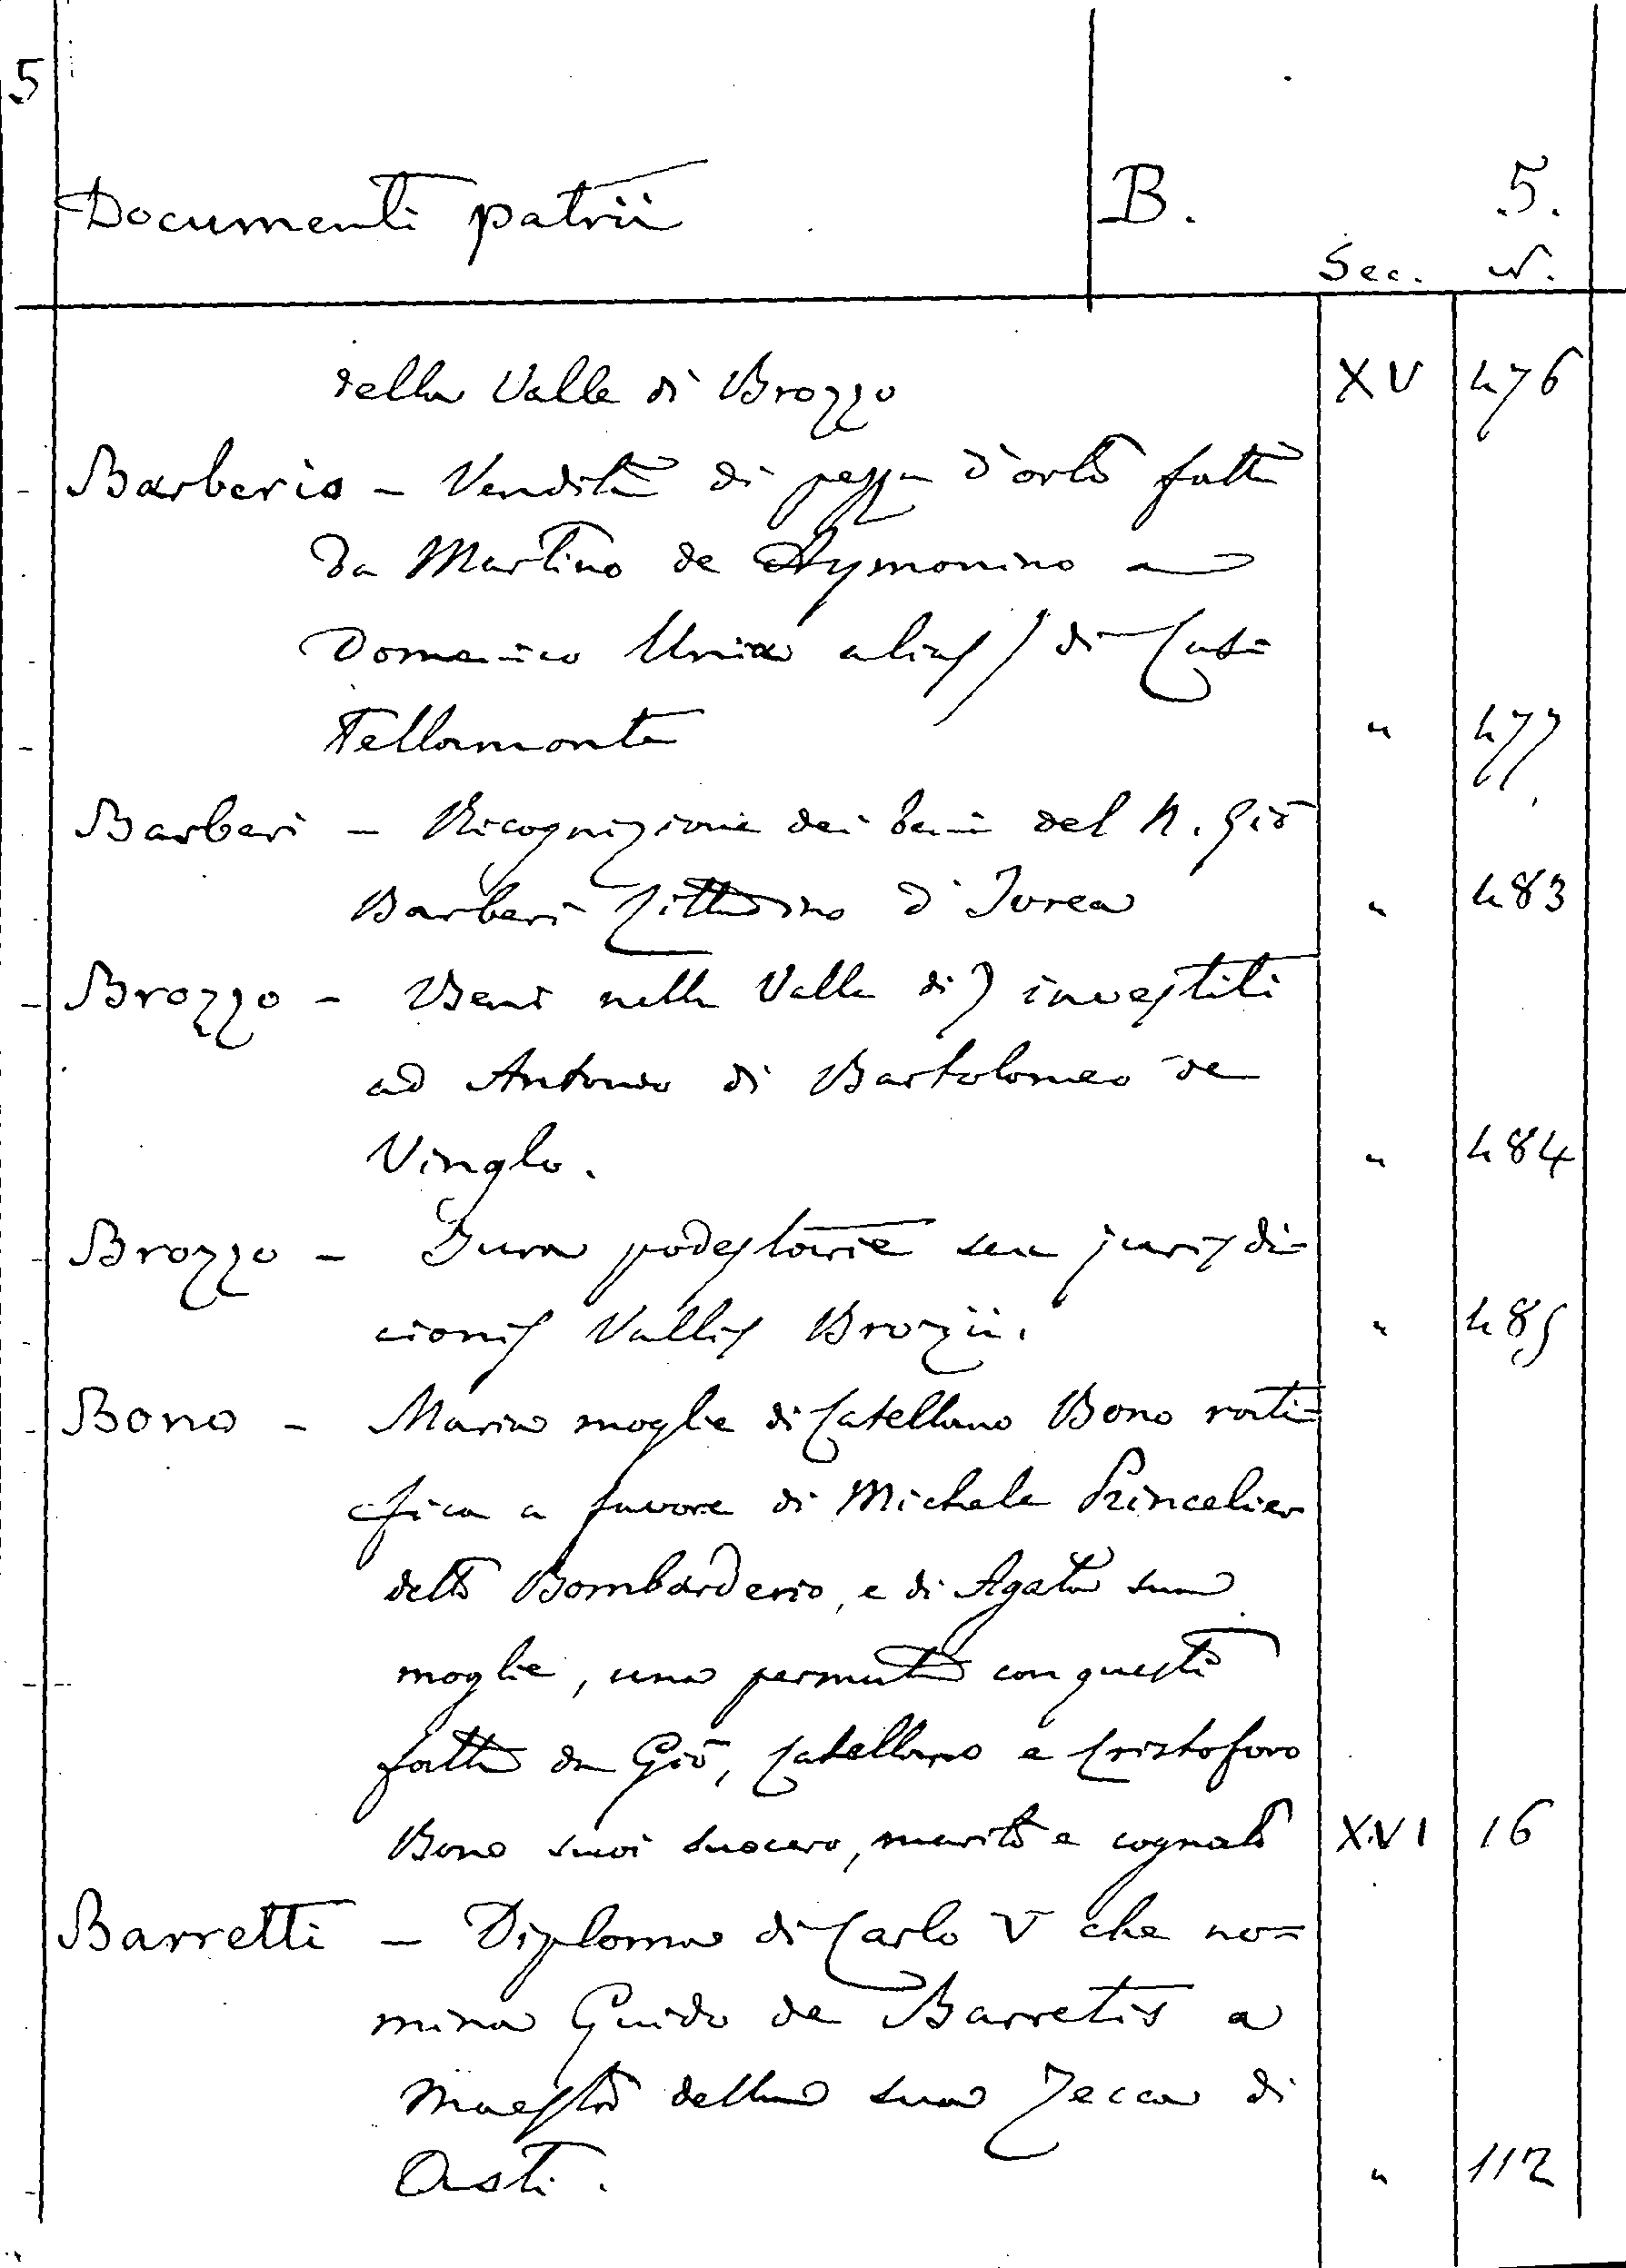 5
Documenti patrii B. 5.
Sec. N.
della Valle di Brozzo XV 476
Barberis - Vendita di pezza d'orto fatta
da Martino de Aymonino a
Domenico alias) di Cas=
tellamonte " 477
Barberi - Ricognizione dei beni del N. Gio
Barberi Cittadino d'Ivrea " 483
Brozzo - Beni nella Valle di) investiti
ad Antonio di Bartolomeo de
Vinglo. " 484
Brozzo - Jura podestarie seu jurisdi=
cionis Vallis Brozii. " 485
Bono - Maria moglie di Catellano Bono rati=
fica a favore di Michele Princelier
detto Bombarderio, e di Agata sua
moglie, una permuta con questi
fatta da Gio, Catellano e Cristoforo
Bono suoi suocero, marito e cognato XVI 16
Barretti - Diploma di Carlo V che no=
mina Guido de Barretis a
Maestro della sua Zecca di
Asti. " 112